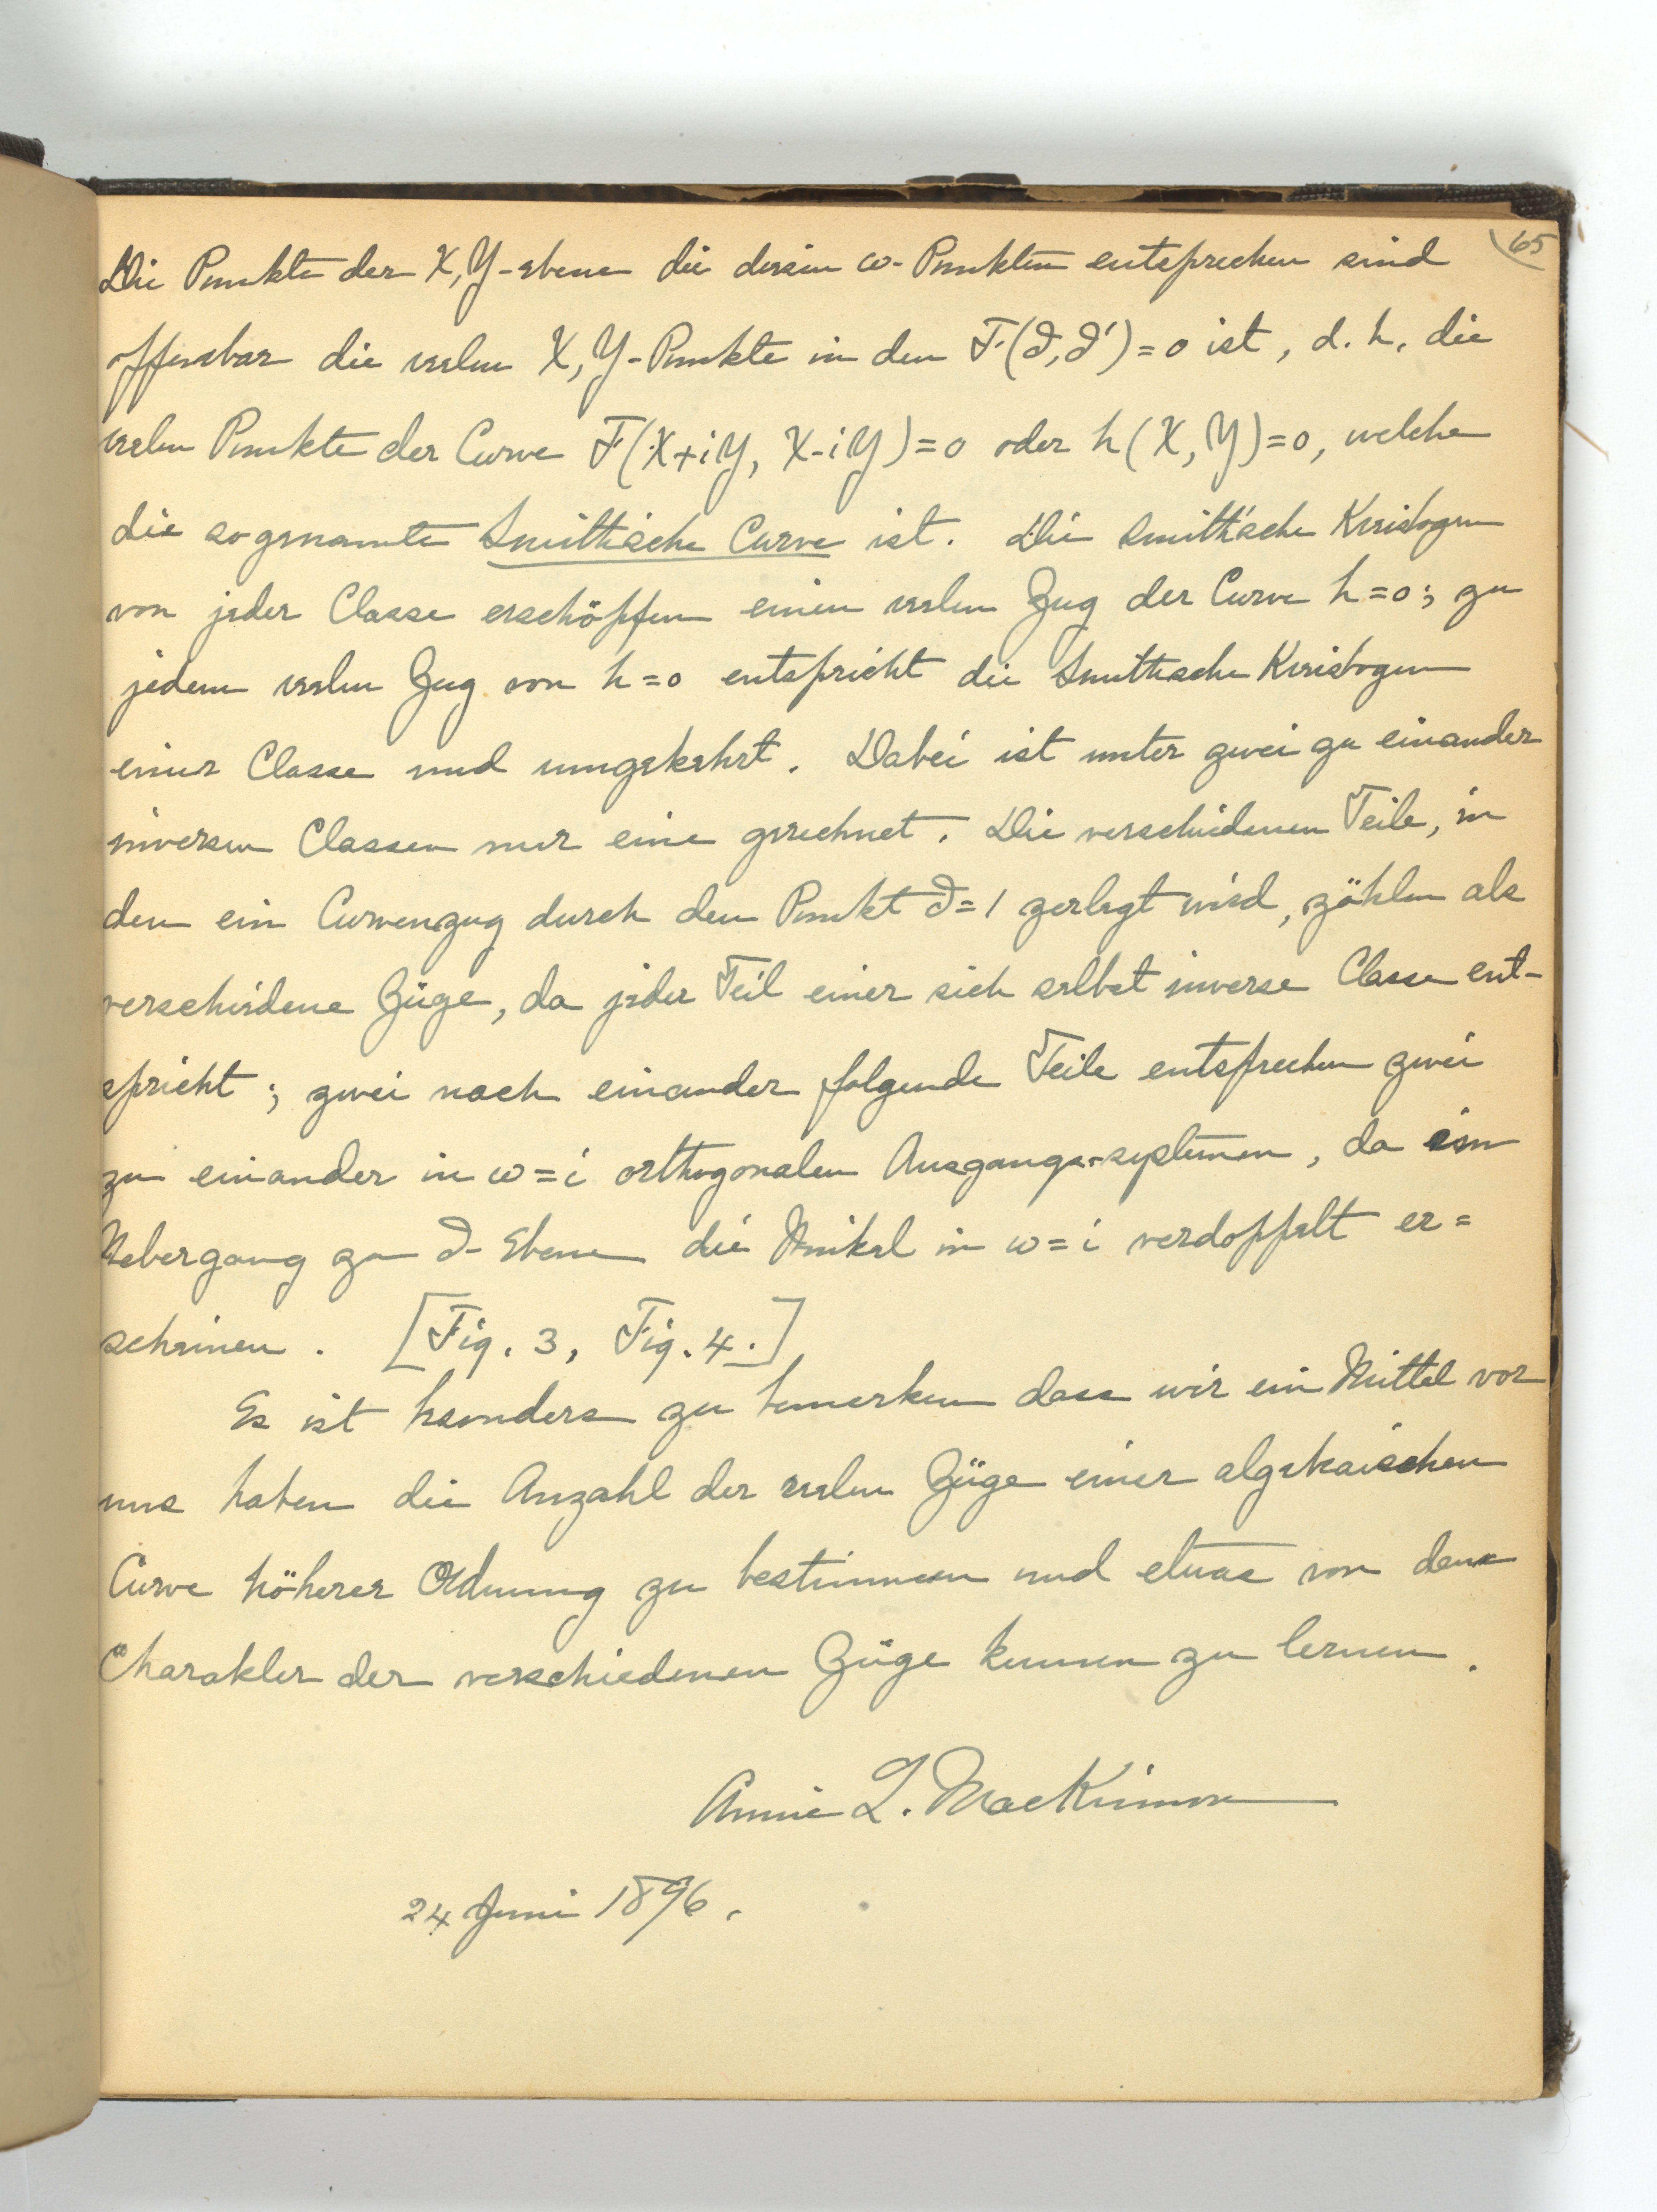 65
Die Punkte der X, Y-ebene die diesen ω-Punkten entsprechen sind
offenbar die reelen X, Y-Punkte in den F(∂, ∂')=0 ist, d. h. die
reelen Punkte der Curve F(X+iY, X-iY)=0 oder h(X, Y)=0, welche
die sogenannte Smithische Curve ist. Die Smith'sche Kreisbogen
von jeder Classe erschöpfen einen reelen Zug der Curve h=0; zu
jedem reelen Zug von h=0 entspricht die Smithsche Kreisbogen
einer Classe und umgekehrt. Dabei ist unter zwei zu einander
inversen Classen nur eine gerechnet. Die verschiedenen Teile, in
den ein Curvenzug durch den Punkt ∂=1 zerlegt wird, zählen als
verschiedene Züge, da jeder Teil einer sich selbst inverse Classe ent-
spricht; zwei nach einander folgende Teile entsprechen zwei
zu einander in ω=i orthogonalen Ausgangs-systemen, da im
Uebergang zu ∂-Ebene die Winkel in ω=i verdoppelt er=
scheinen. [Fig. 3, Fig. 4.]
Es ist besonders zu bemerken dass wir ein Mittel vor
uns haben die Anzahl der reelen Züge einer algebraischen
Curve höherer Ordnung zu bestimmen und etwas von dem
Charakter der verschiedenen Züge kennen zu lernen.
Annie L. MacKinnon
24 Juni 1896.